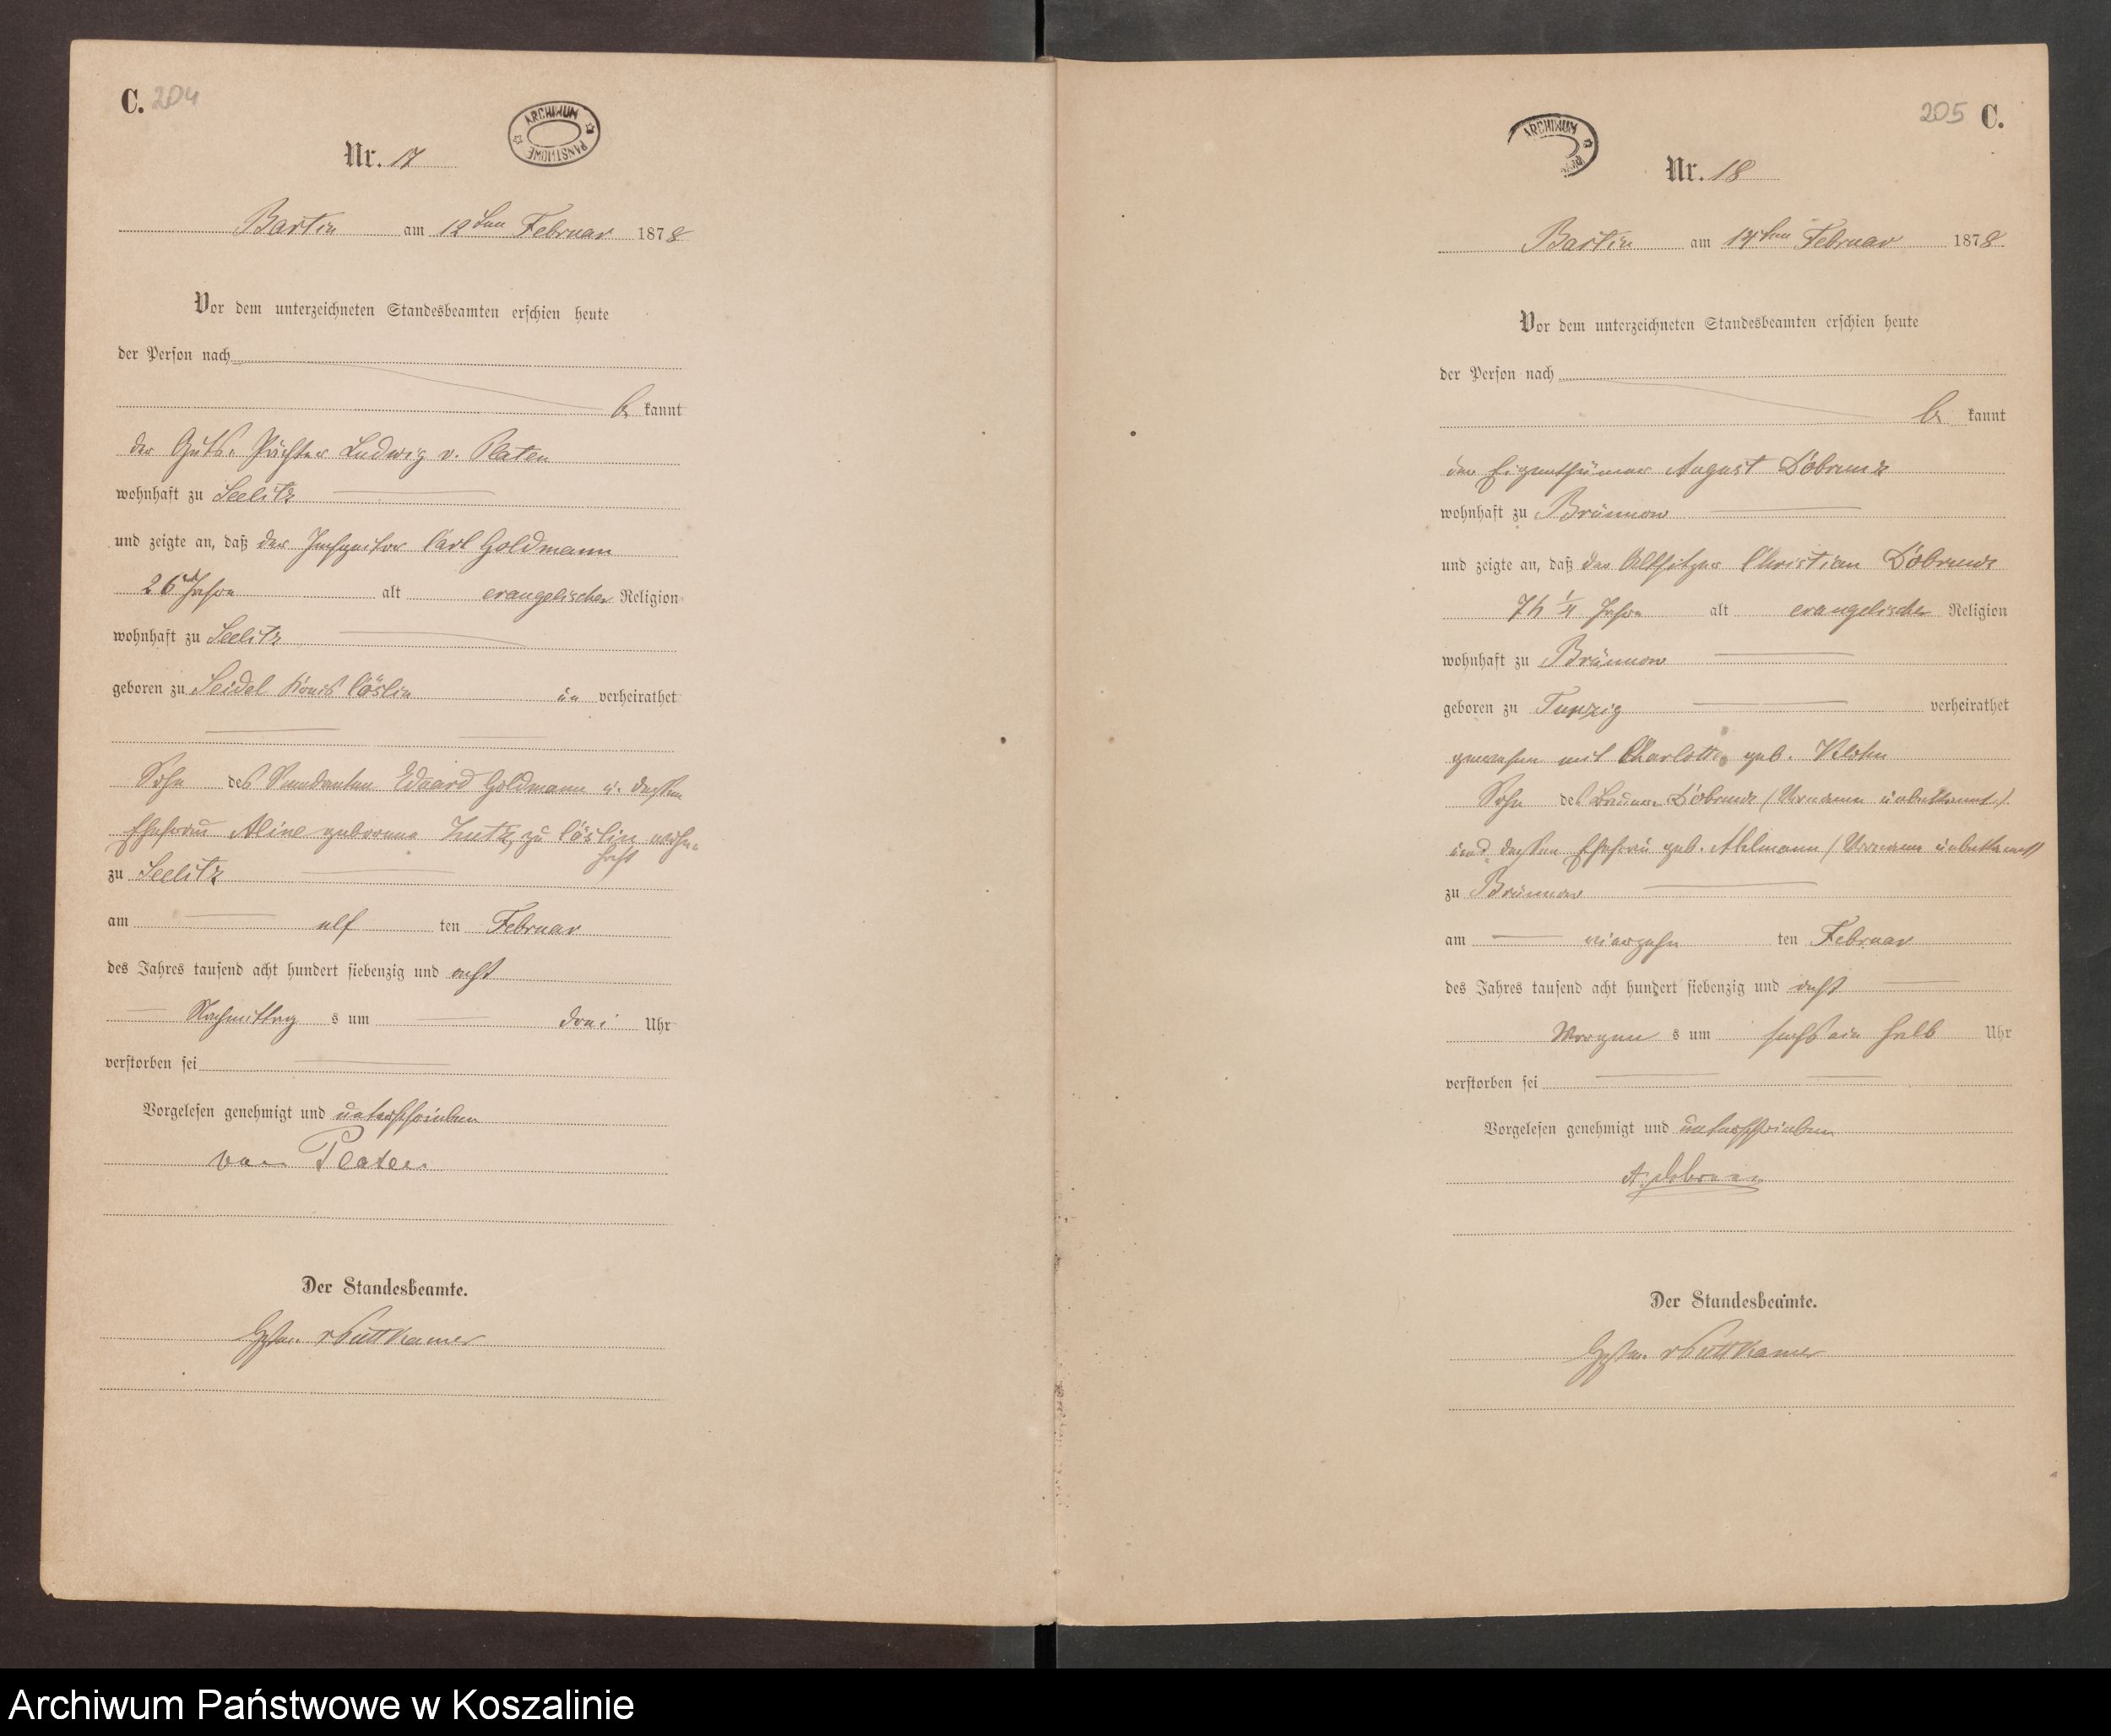 C. 204
ARCHIWUM PAŃSTWOWE
Nr. 17
Bartin am 12ten Februar 1878
Vor dem unterzeichneten Standesbeamten erschien heute
der Person nach
be kannt
der Guts-Pächter Ludwig v. Platen
wohnhaft zu Seelitz
und zeigte an, daß der Inspector Carl Goldmann
26 Jahre alt evangelischer Religion
wohnhaft zu Seelitz
geboren zu Seidel Kreis Cöslin un verheirathet
Sohn des Rendanten Eduard Goldmann u. dessen
Ehefrau Aline geborene zu Cöslin wohn-
haft
zu Seelitz
am elf ten Februar
des Jahres tausend acht hundert siebenzig und acht
Nachmittag s um drei Uhr
verstorben sei
Vorgelesen genehmigt und unterschrieben
von Platen
Der Standesbeamte.
v Puttkamer
205 C.
ARCHIWUM
Nr. 18
Bartin am 14ten Februar 1878.
Vor dem unterzeichneten Standesbeamten erschien heute
der Person nach
be kannt
der Eigenthümer August
wohnhaft zu Brünnow
und zeigte an, daß der Altsitzer Christian
1/4 Jahre alt evangelischer Religion
wohnhaft zu Brünnow
geboren zu verheirathet
gewesen mit Charlotte geb.
Sohn des Bauern (Vorname unbekannt)
und dessen Ehefrau geb. Ahlmann (Vorname unbekannt)
zu Brünnow
am vierzehn ten Februar
des Jahres tausend acht hundert siebenzig und acht
Morgen s um sechs ein halb Uhr
verstorben sei
Vorgelesen genehmigt und unterschrieben
Der Standesbeamte.
v Puttkamer
Archiwum Państwowe w Koszalinie